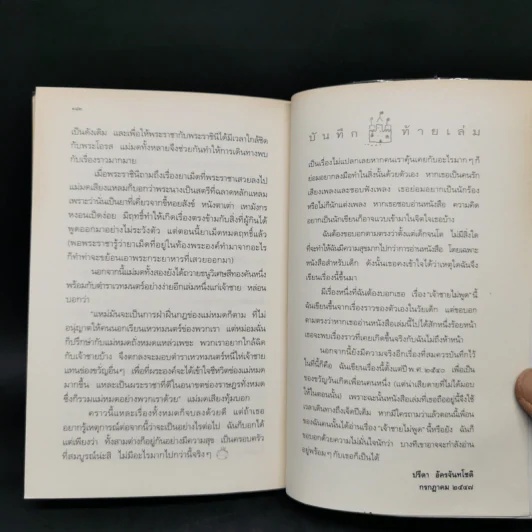 เป็นดังเดิม และเพื่อให้พระราชากับพระราชินีได้มีเวลาใกล้ชิด
กับพระโอรส แม่มดทั้งหลายจึงช่วยกันทำให้การเดินทางพบ
กับเรื่องราวมากมาย
เมื่อพระราชินีถามถึงยาเม็ดที่พระราชาสวยลงไป
แม่มดเสียงแหลมก็บอกว่าพระนางเป็นสตรีที่ฉลาดหลักแหลม
เพราะว่านั่นเป็นยาที่เคี่ยวจากขี้หอยสังข์ หนังตาเต่า เหามังกร
หงอนเป็ดง่อย มีฤทธิ์ทำให้เกิดเรื่องตรงข้ามกับสิ่งที่ผู้กินได้
พูดออกมาอย่างไม่ระวังตัว แต่ตอนนี้ยาไม่มีฤทธิ์แล้ว
(พอพระราชารู้ว่ายาเม็ดที่อยู่ในท้องพระองค์ทำมาจากอะไร
ก็ทำท่าจะขย้อนเอาพระกระยาหารที่เสวยออกมา)
นอกจากนี้แม่มดทั้งสองยังได้ถวายธนูวิเศษสีทองคันหนึ่ง
พร้อมกับตำราเวทมนตร์อย่างง่ายอีกเล่มหนึ่งแก่เจ้าชาย หล่อน
บอกว่า
"แหม่มันจะเป็นการฝ่าฝืนกฎของแม่มดก็ตาม ที่ไม่
อนุญาตให้คนนอกเรียนเหวทมนตร์ของพวกเรา แต่หม่อมฉัน
ก็ปรึกษากับแม่มดถ้ำหมดแหล่วเพชะ พวกเราอยากใกล้ชิด
กับเจ้าชายบ้าง จึงตกลงจะมอบตำราเวทมนตร์นี้ให้เจ้าชาย
แทนของขวัญชิ้นอื่นๆ เพื่อที่พระองค์จะได้เข้าใจชีวิตของแม่มด
มากขึ้น และหากจะเป็นพระราชาที่ดีในอนาคตของราษฎรทั้งหมด
ซึ่งก็รวมแม่มดอย่างพวกเราด้วย" แม่มดเสียงทุ้มบอก
คราวนี้แหละเรื่องทั้งหมดก็จบลงด้วยดี แต่ถ้าเธอ
อยากรู้เหตุการณ์ต่อจากนี้ว่าจะเป็นอย่างไรต่อไป ฉันก็บอกได้
แต่เพียงว่า ทั้งสามต่างก็อยู่กันอย่างมีความสุข เป็นครอบครัว
ที่สมบูรณ์น่ะสิ ไม่มีอะไรมากไปกว่านี้จริงๆ
บันทึก ท้ายเล่ม
เป็นเรื่องไม่แปลกเลยหากคนเราคุ้นเคยกับอะไรมากๆ ก็
ย่อมอยากลงมือทำในสิ่งนั้นด้วยตัวเอง หากเธอเป็นคนรัก
เสียงเพลงและชอบฟังเพลง เธอย่อมอยากเป็นนักร้อง
หรือไม่ก็นักแต่งเพลง หากเธอชอบอ่านหนังสือ ความคิด
อยากเป็นนักเขียนก็อาจแวบเข้ามาในจิตใจเธอบ้าง
ฉันต้องขอบอกตามตรงว่าตั้งแต่เด็กจนโต ไม่มีสิ่งใด
ที่จะทำให้ฉันมีความสุขมากไปกว่าการอ่านหนังสือ โดยเฉพาะ
หนังสือสำหรับเด็ก ดังนั้นเธอคงเข้าใจได้ว่าเหตุใดฉันจึง
เขียนเรื่องนี้ขึ้นมา
มีเรื่องหนึ่งที่ฉันต้องบอกเธอ เรื่อง "เจ้าชายไม่พูด" นี้
ฉันเขียนขึ้นจากเรื่องราวของตัวเองในวัยเด็ก แต่ขอบอก
ตามตรงว่าหากเธออ่านหนังสือเล่มนี้ไปได้สักหนึ่งร้อยหน้า
เธอจะพบว่าเรื่องราวที่เคยเกิดขึ้นจริงกับฉันไม่ถึงห้าหน้า
นอกจากนี้ยังมีความจริงอีกเรื่องที่สมควรบันทึกไว้
ในที่นี้ก็คือ ฉันเขียนเรื่องนี้ตั้งแต่ปี พ.ศ. ๒๕๔๐ เพื่อเป็น
ของขวัญวันเกิดเพื่อนคนหนึ่ง (แต่น่าเสียดายที่ไม่ได้มอบ
ให้ในตอนนั้น) เพราะฉะนั้นหนังสือเล่มที่เธอถืออยู่นี้จึงใช้
เวลาเดินทางถึงเจ็ดปีเต็ม หากมีใครถามว่าแล้วตอนนี้เพื่อน
ของฉันคนนั้นได้อ่านเรื่อง "เจ้าชายไม่พูด" นี้หรือยัง ฉันก็
ขอบอกด้วยความไม่มั่นใจนักว่า บางทีเขาอาจจะกำลังอ่าน
อยู่พร้อมๆ กับเธอก็เป็นได้
ปรีดา อัครจันทโชติ
กรกฎาคม ๒๕๔๗